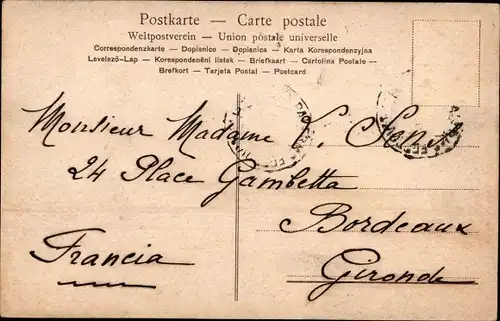 Postkarte — Carte postale
Weltpostverein — Union postale universelle
Correspondenzkarte — Dopisnice — Dopisnica — Karta Korespondenzyjna
Levelező-Lap — Korespondenční lístek — Briefkaart — Cartolina Postale —
Brefkort — Tarjeta Postal — Postcard
Monsieur Madame S.
24 Place Gambetta
Bordeaux
Francia
Gironde